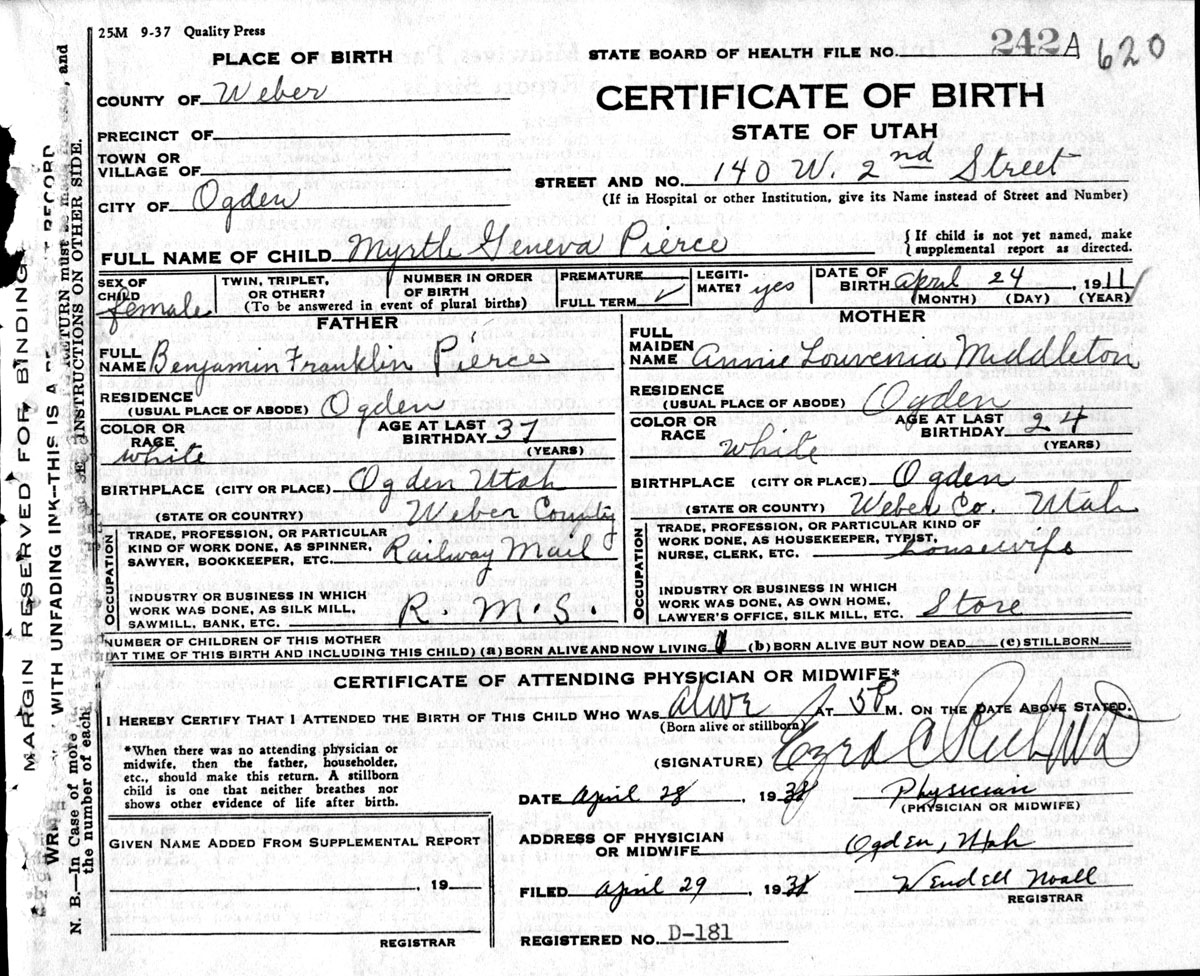 25M 9-37 Quality Press
PLACE OF BIRTH
STATE BOARD OF HEALTH FILE NO. 242A 620
COUNTY OF Weber
CERTIFICATE OF BIRTH
STATE OF UTAH
PRECINCT OF
TOWN OR VILLAGE OF
STREET AND NO. 140 W. 2nd Street
(If in Hospital or other Institution, give its Name instead of Street and Number)
CITY OF Ogden
FULL NAME OF CHILD Myrtle Geneva Pierce
{ If child is not yet named, make supplemental report as directed.
SEX OF CHILD female
TWIN, TRIPLET, OR OTHER?
NUMBER IN ORDER OF BIRTH
(To be answered in event of plural births)
PREMATURE
FULL TERM ✓
LEGITIMATE? yes
DATE OF BIRTH April 24, 1911
(MONTH) (DAY) (YEAR)
FATHER
FULL NAME Benjamin Franklin Pierce
RESIDENCE (USUAL PLACE OF ABODE) Ogden
COLOR OR RACE white
AGE AT LAST BIRTHDAY 37 (YEARS)
BIRTHPLACE (CITY OR PLACE) Ogden Utah
(STATE OR COUNTRY) Weber County
OCCUPATION
TRADE, PROFESSION, OR PARTICULAR KIND OF WORK DONE, AS SPINNER, SAWYER, BOOKKEEPER, ETC. Railway Mail
INDUSTRY OR BUSINESS IN WHICH WORK WAS DONE, AS SILK MILL, SAWMILL, BANK, ETC. R. M. S.
MOTHER
FULL MAIDEN NAME Annie Louvenia Middleton
RESIDENCE (USUAL PLACE OF ABODE) Ogden
COLOR OR RACE White
AGE AT LAST BIRTHDAY 24 (YEARS)
BIRTHPLACE (CITY OR PLACE) Ogden
(STATE OR COUNTY) Weber Co. Utah
OCCUPATION
TRADE, PROFESSION, OR PARTICULAR KIND OF WORK DONE, AS HOUSEKEEPER, TYPIST, NURSE, CLERK, ETC. housewife
INDUSTRY OR BUSINESS IN WHICH WORK WAS DONE, AS OWN HOME, LAWYER'S OFFICE, SILK MILL, ETC. Store
NUMBER OF CHILDREN OF THIS MOTHER
(AT TIME OF THIS BIRTH AND INCLUDING THIS CHILD) (a) BORN ALIVE AND NOW LIVING 1 (b) BORN ALIVE BUT NOW DEAD (c) STILLBORN
CERTIFICATE OF ATTENDING PHYSICIAN OR MIDWIFE*
I HEREBY CERTIFY THAT I ATTENDED THE BIRTH OF THIS CHILD WHO WAS alive AT 5 P M. ON THE DATE ABOVE STATED.
(Born alive or stillborn)
*When there was no attending physician or
midwife, then the father, householder,
etc., should make this return. A stillborn
child is one that neither breathes nor
shows other evidence of life after birth.
(SIGNATURE) Ezra C Rich MD
DATE April 28, 19
Physician
(PHYSICIAN OR MIDWIFE)
GIVEN NAME ADDED FROM SUPPLEMENTAL REPORT
, 19
REGISTRAR
ADDRESS OF PHYSICIAN OR MIDWIFE Ogden, Utah
FILED April 29, 19
Wendell Noall
REGISTRAR
REGISTERED NO. D-181
MARGIN RESERVED FOR BINDING
WITH UNFADING INK--THIS IS A RECORD
N. B.—In Case of more RETURN must be and
the number of each INSTRUCTIONS ON OTHER SIDE.